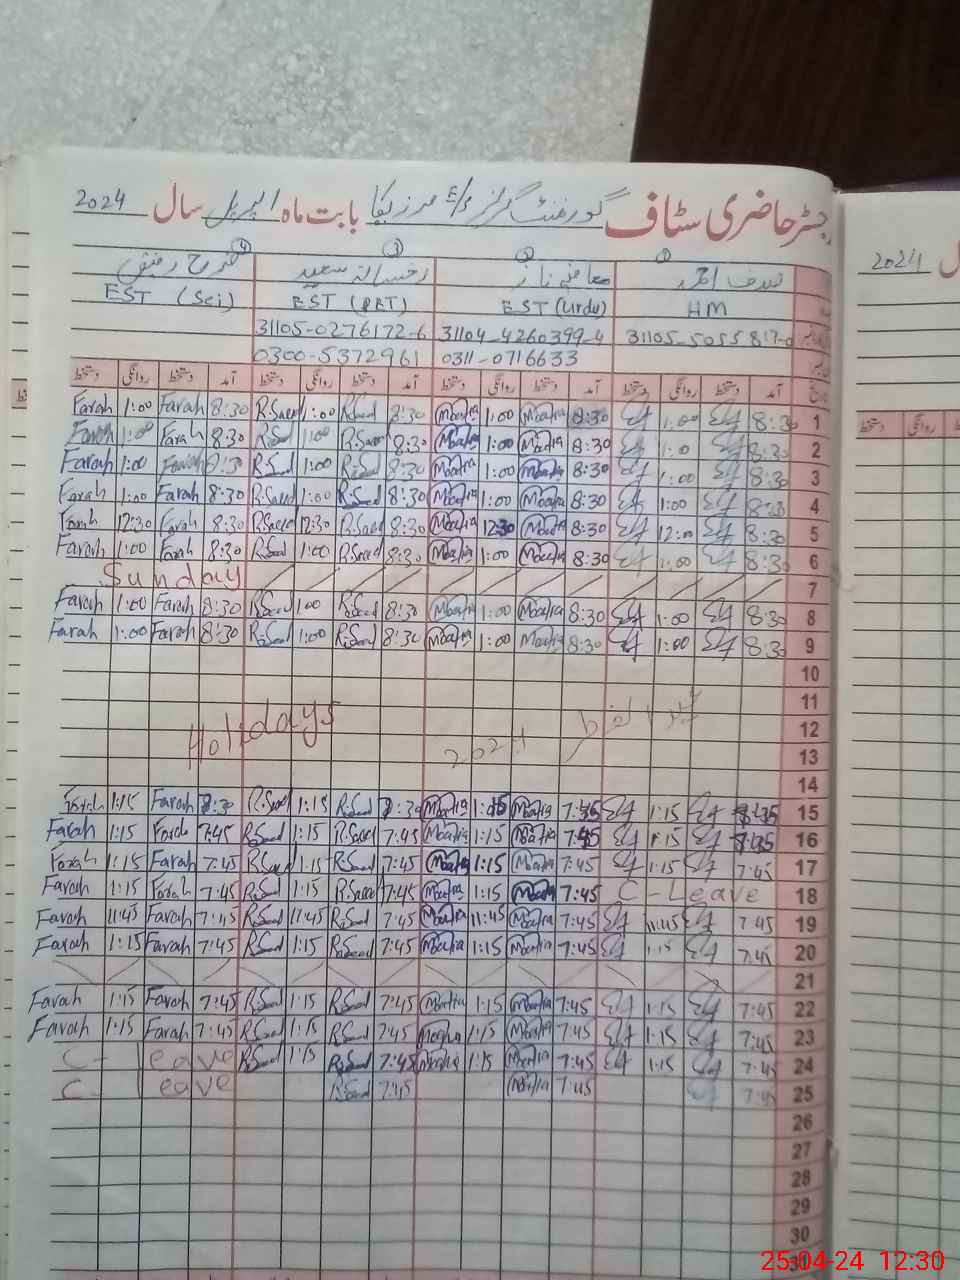 رجسٹر حاضری سٹاف گورنمنٹ گرلز بابت ماہ اپریل سال 2024
① ② ③ ④
صدف رخسانہ سعید فرح رفیق
HM EST (Urdu) EST (PET) EST (Sci)
31104-4260399-4 31105-0276172-6
0311-0716633 0300-5372961
آمد دستخط روانگی دستخط آمد دستخط روانگی دستخط آمد دستخط روانگی دستخط آمد دستخط روانگی دستخط
Farah 1:00 Farah 8:30 R.Saeed 1:00 R.Saeed 8:30 Moatra 1:00 Moatra 8:30 1:00 8:30 1
Farah 1:00 Farah 8:30 R.Saeed 1:00 R.Saeed 8:30 Moatra 1:00 Moatra 8:30 1:00 8:30 2
Farah 1:00 Farah 8:30 R.Saeed 1:00 R.Saeed 8:30 Moatra 1:00 Moatra 8:30 1:00 8:30 3
Farah 1:00 Farah 8:30 R.Saeed 1:00 R.Saeed 8:30 Moatra 1:00 Moatra 8:30 1:00 8:30 4
Farah 12:30 Farah 8:30 R.Saeed 12:30 R.Saeed 8:30 Moatra 12:30 Moatra 8:30 12:00 8:30 5
Farah 1:00 Farah 8:30 R.Saeed 1:00 R.Saeed 8:30 Moatra 1:00 Moatra 8:30 1:00 8:30 6
Sunday 7
Farah 1:00 Farah 8:30 R.Saeed 1:00 R.Saeed 8:30 Moatra 1:00 Moatra 8:30 1:00 8:30 8
Farah 1:00 Farah 8:30 R.Saeed 1:00 R.Saeed 8:30 Moatra 1:00 Moatra 8:30 1:00 8:30 9
10
11
Holidays 2024 عید الفطر 12
13
14
Farah 1:15 Farah 8:30 R.Saeed 1:15 R.Saeed Moatra Moatra 7:45 1:15 15
Farah 1:15 Farah 7:45 R.Saeed 1:15 R.Saeed 7:45 Moatra 1:15 Moatra 7:45 1:15 16
Farah 1:15 Farah 7:45 R.Saeed 1:15 R.Saeed 7:45 Moatra 1:15 Moatra 7:45 1:15 7:45 17
Farah 1:15 Farah 7:45 R.Saeed 1:15 R.Saeed 7:45 Moatra 1:15 Moatra 7:45 C-Leave 18
Farah 11:45 Farah 7:45 R.Saeed 11:45 R.Saeed 7:45 Moatra 11:45 Moatra 7:45 11:45 7:45 19
Farah 1:15 Farah 7:45 R.Saeed 1:15 R.Saeed 7:45 Moatra 1:15 Moatra 7:45 1:15 7:45 20
21
Farah 1:15 Farah 7:45 R.Saeed 1:15 R.Saeed 7:45 Moatra 1:15 Moatra 7:45 1:15 7:45 22
Farah 1:15 Farah 7:45 R.Saeed 1:15 R.Saeed 7:45 1:15 Moatra 7:45 1:15 7:45 23
C-leave R.Saeed 1:15 R.Saeed 7:45 1:15 Moatra 7:45 1:15 7:45 24
C-leave R.Saeed 7:45 Moatra 7:45 7:45 25
26
27
28
29
30
31
2024
دستخط روانگی دستخط
25-04-24 12:30